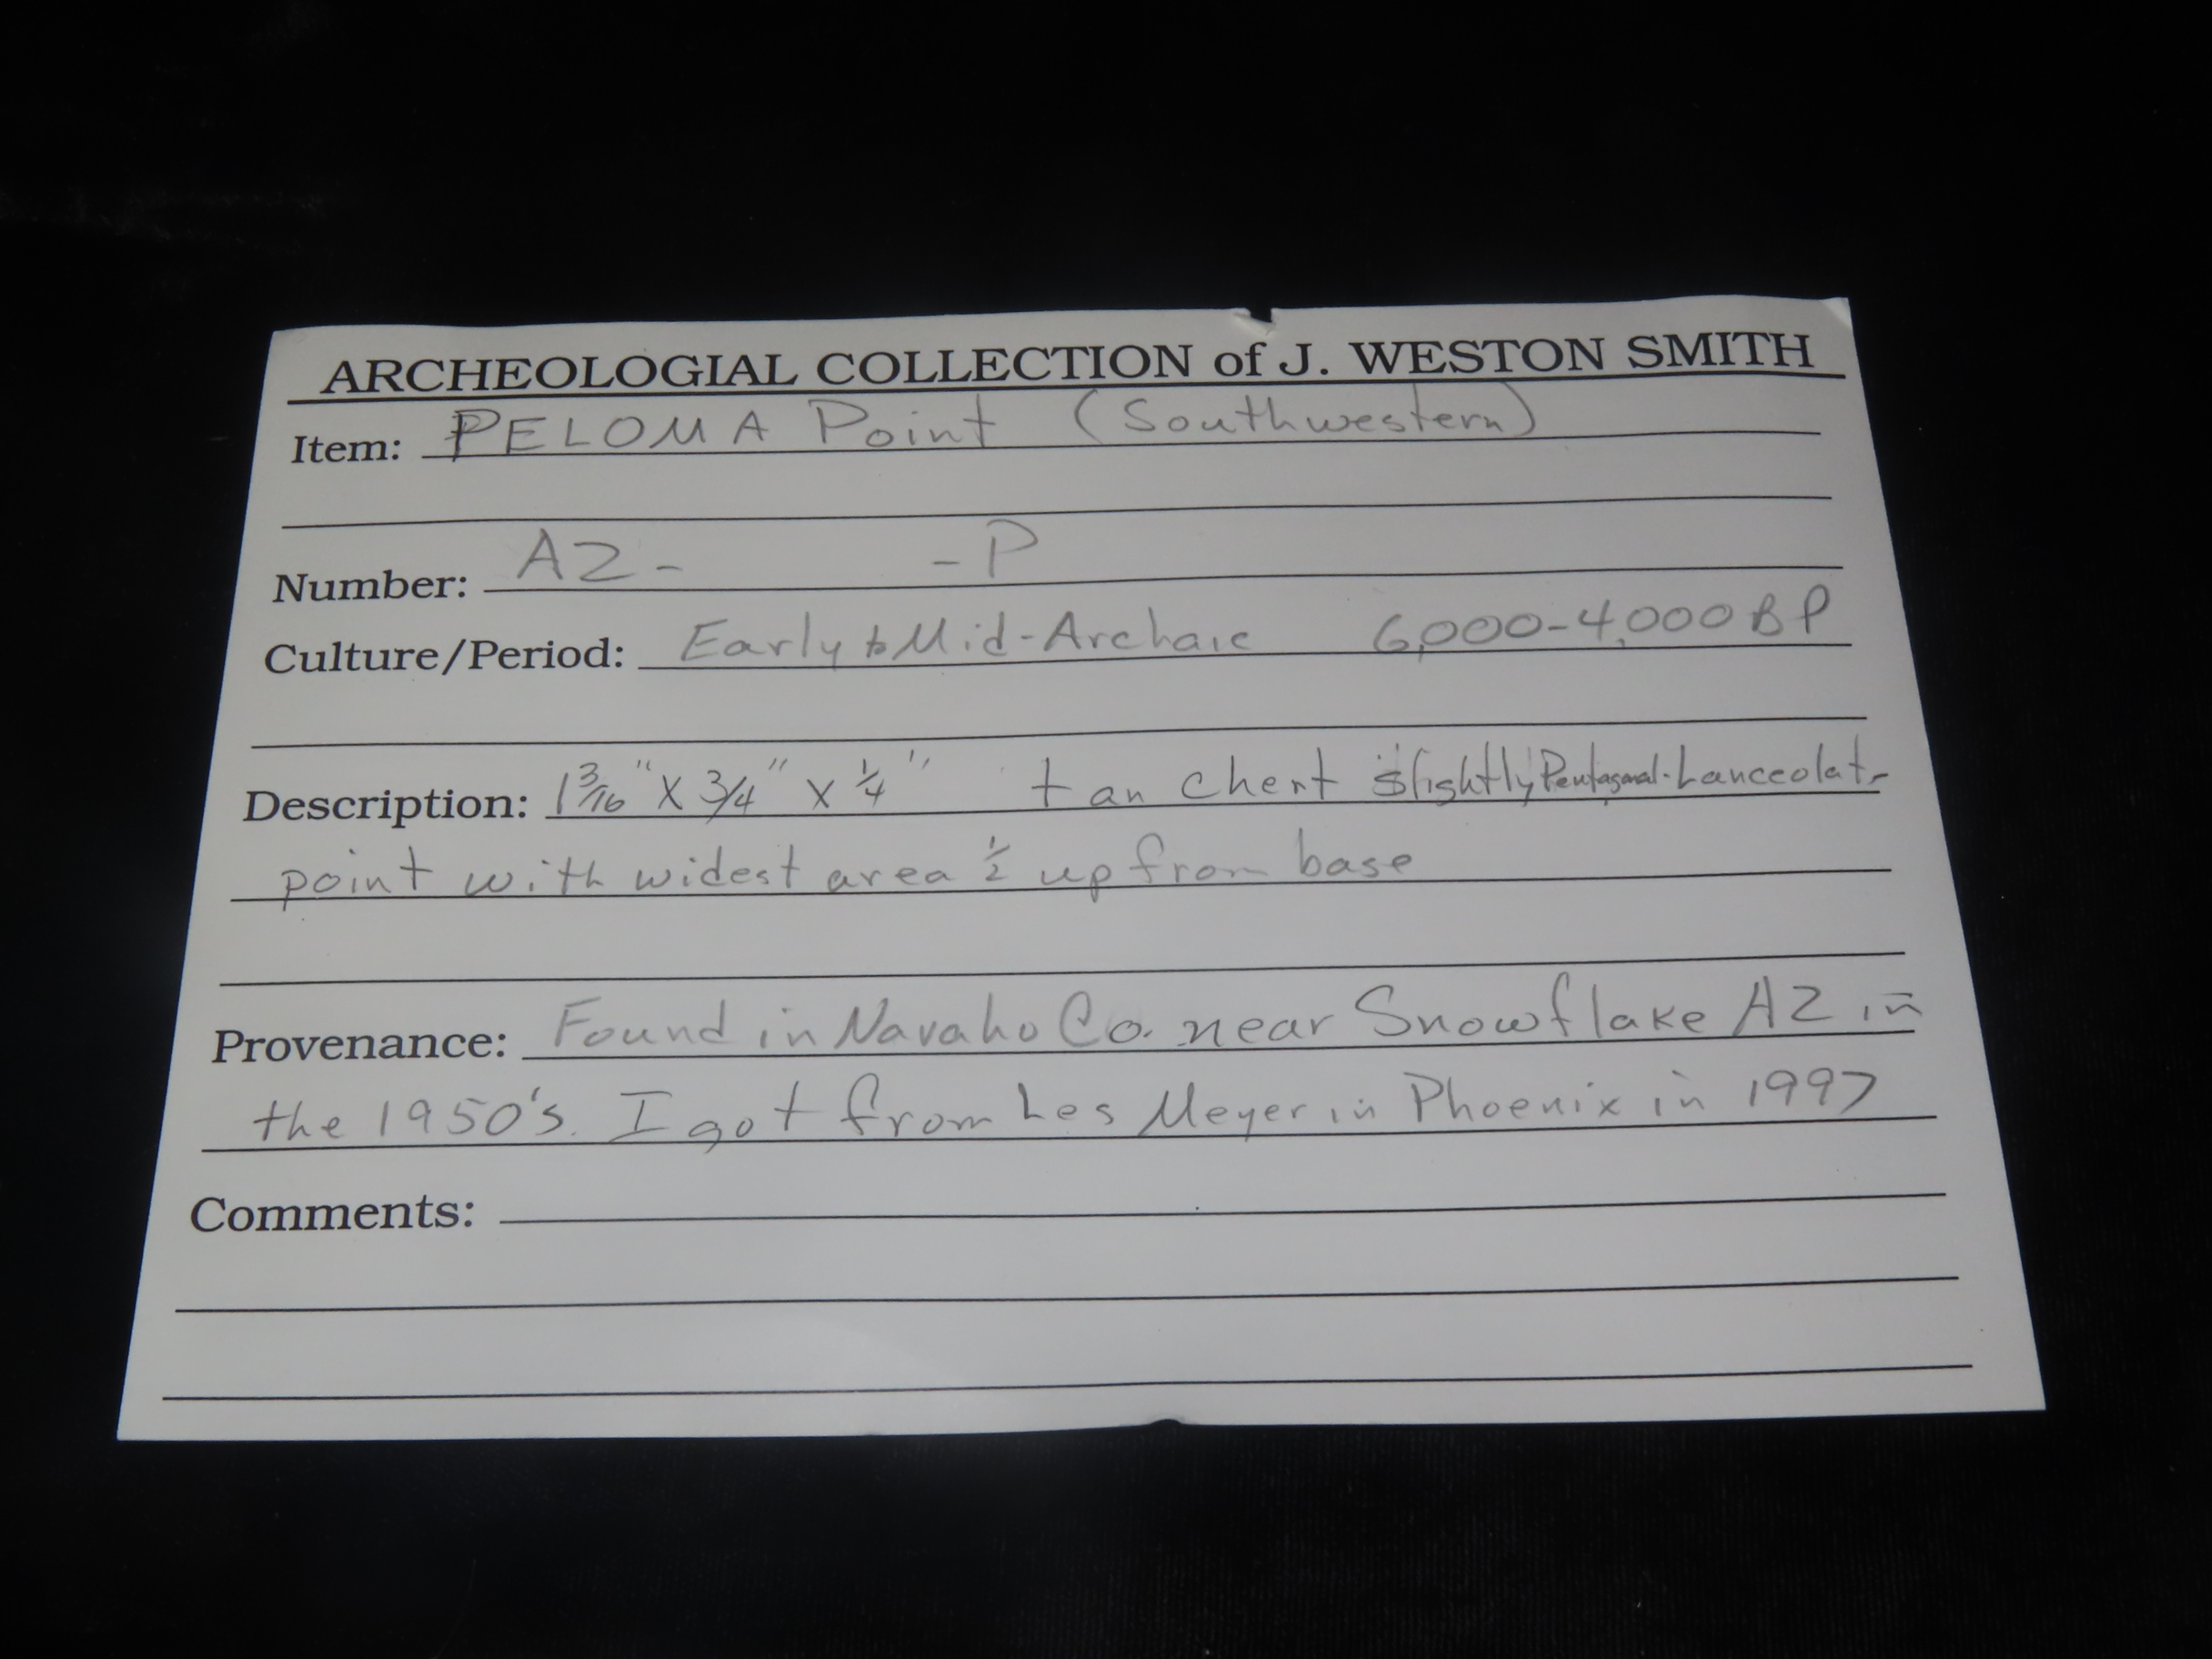 ARCHEOLOGIAL COLLECTION of J. WESTON SMITH
Item: PELOMA Point (Southwestern)
Number: AZ- -P
Culture/Period: Early to Mid-Archaic 6,000-4,000 BP
Description: 1 3/16" X 3/4" X 1/4" tan chert slightly Pentagonal-Lanceolate
point with widest area 1/2 up from base
Provenance: Found in Navaho Co. near Snowflake AZ in
the 1950's. I got from Les Meyer in Phoenix in 1997
Comments: